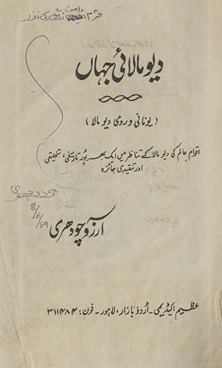 دیومالائی جہاں
(یونانی و رومی دیومالا)
اقوامِ عالم کی دیومالا کے تناظر میں ایک بھرپور تاریخی، تحقیقی
اور تنقیدی جائزہ
آرزو چودھری
عظیم اکیڈیمی۔ اُردو بازار، لاہور۔ فون: ۳۱۱۴۸۴